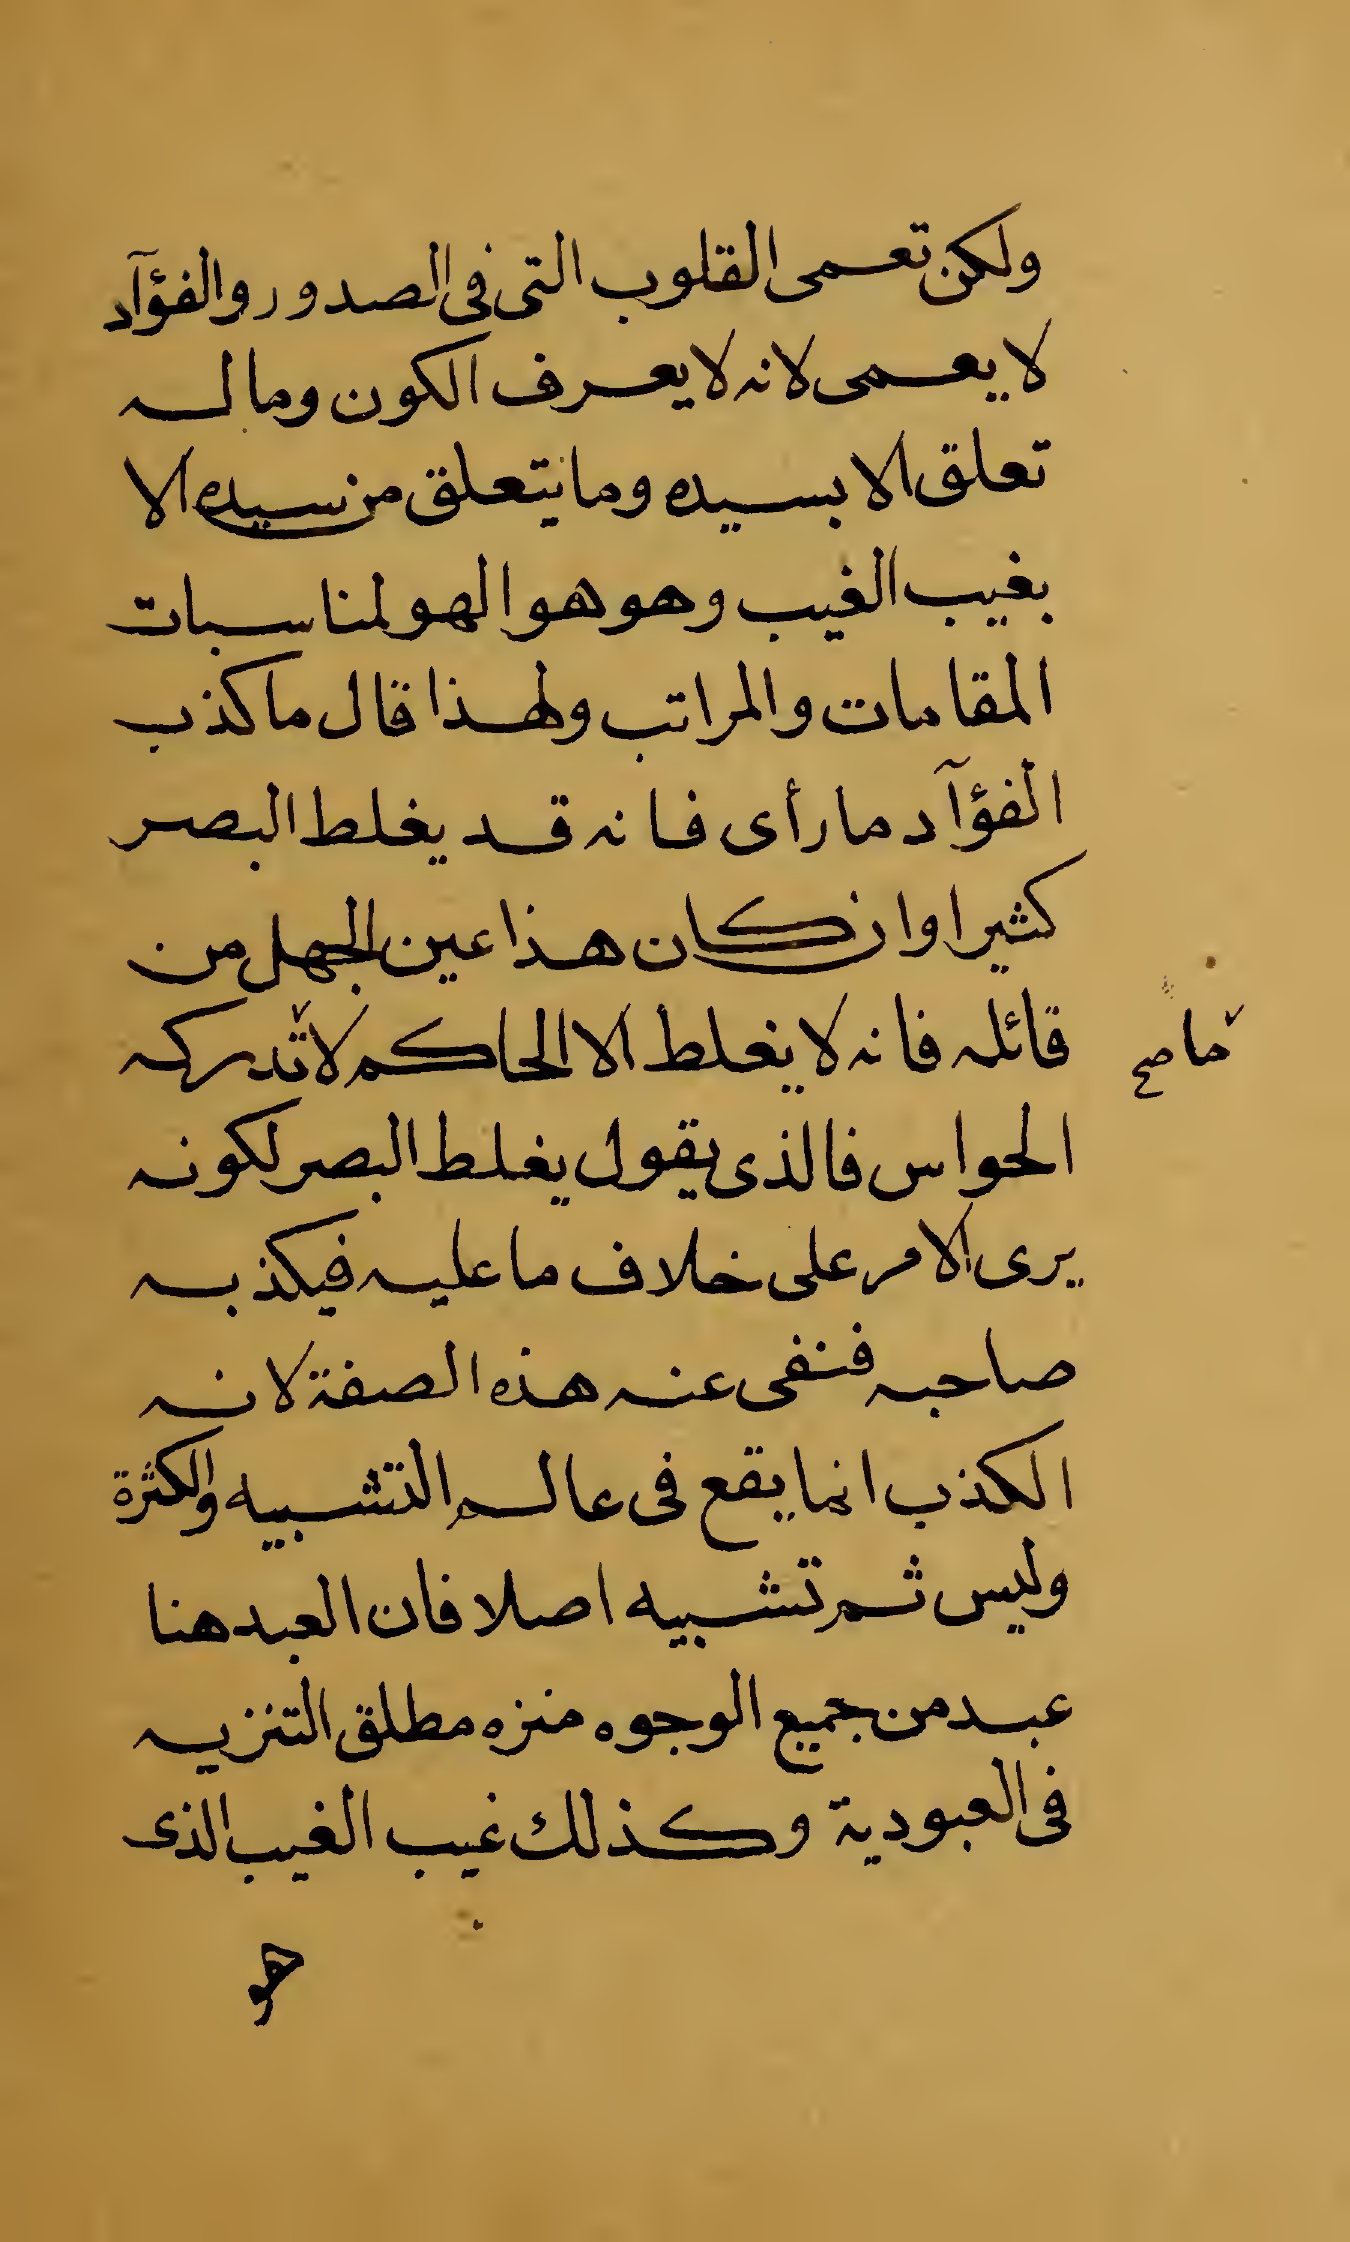 ولكن تعمى القلوب التى فى الصدور والفؤآد
لا يعمى لانه لا يعرف الكون وماله
تعلق الا بسيده وما يتعلق من سيده الا
بغيب الغيب وهو هو الهو لمناسبات
المقامات والمراتب ولهذا قال ما كذب
الفؤآد ما رأى فانه قد يغلط البصر
كثيرا وان كان هذا عين الجهل من
قائله فانه لا يغلط الا الحاكم لا تدركه
ما صح
الحواس فالذى يقول يغلط البصر لكونه
يرى الامر على خلاف ما عليه فيكذبه
صاحبه فنفى عنه هذه الصفة لانه
الكذب انما يقع فى عالم التشبيه والكثرة
وليس ثم تشبيه اصلا فان العبد هنا
عبد من جميع الوجوه منزه مطلق التنزيه
فى العبودية وكذلك غيب الغيب الذى
هو